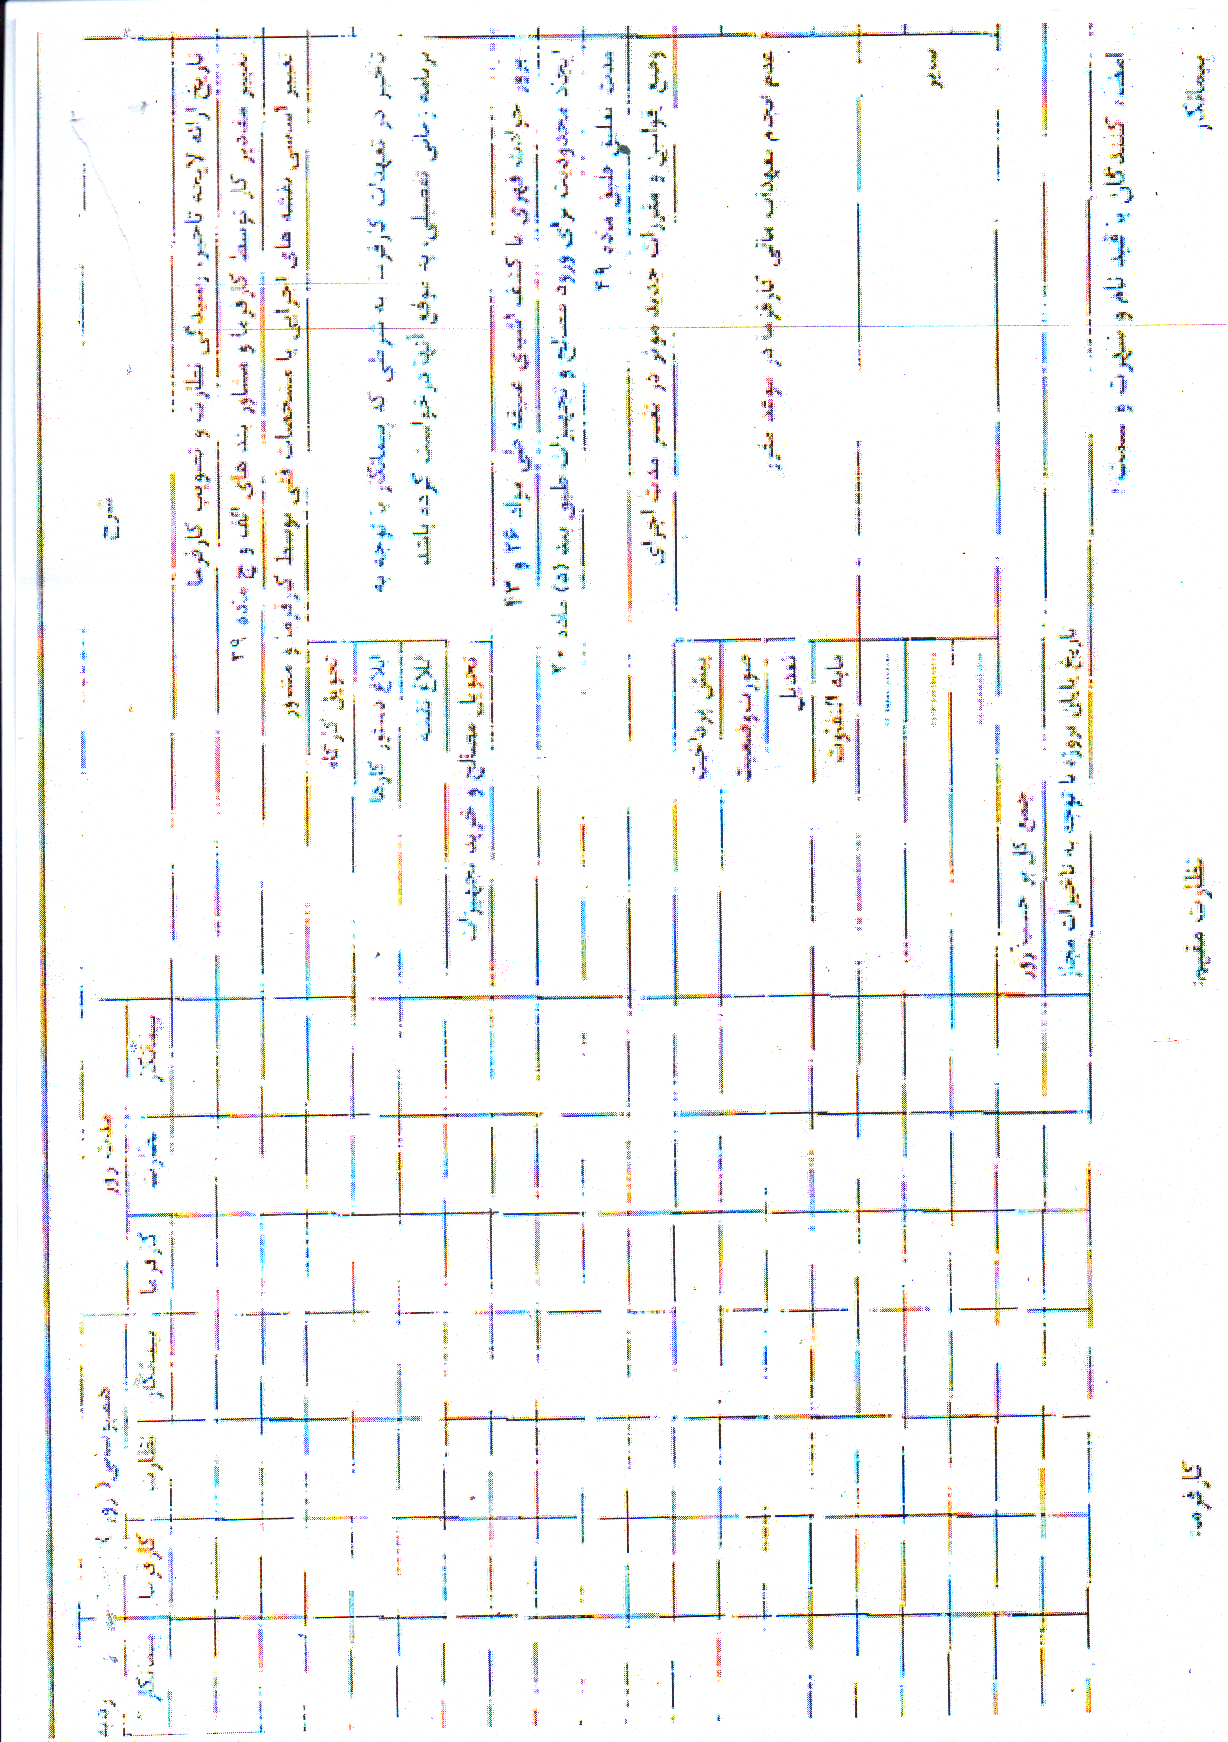 شرح
مدت روز
همپوشانی ( روز )
پیمانکار
نظارت
کارفرما
پیمانکار
نظارت
کارفرما
پیمانکار
تاریخ ارائه لایحه تاخیر، رسیدگی نظارت و تصویب کارفرما
تغییر مقادیر کار توسط کارفرما و مشاور بند های الف و ج ماده ۲۹
تغییر اساسی نقشه های اجرایی یا مشخصات فنی توسط کارفرما و مشاور
تاخیر در تعهدات کارفرما به شرطی که پیمانکار با توجه به
برنامه زمانی تفصیلی، به موقع آنها درخواست کرده باشد
تحویل کارگاه
ابلاغ دستور کارها
ابلاغ نقشه
تحویل مصالح و خرید تجهیزات
بروز حوادث قهری یا کشف اشیای عتیقه طی مواد ۲۶ و ۴۳
ایجاد محدودیت برای ورود مصالح و تجهیزات طبق بند (د) ماده ۲۰
مدت تعلیق طبق ماده ۴۹
وضع قوانین و مقررات جدید موثر در تغییر مدت اجرای
عدم انجام تعهدات مالی کارفرما در موعد مقرر
پیش پرداخت
صورت وضعیت
تعدیل
مابه التفاوت
سایر
جمع کل بر حسب روز
تاریخ پایان پروژه با توجه به تاخیرات مجاز
امضاء کنندگان با قید نام و شهرت و سمت :
پیمانکار
نظارت مقیم:
کارفرما: